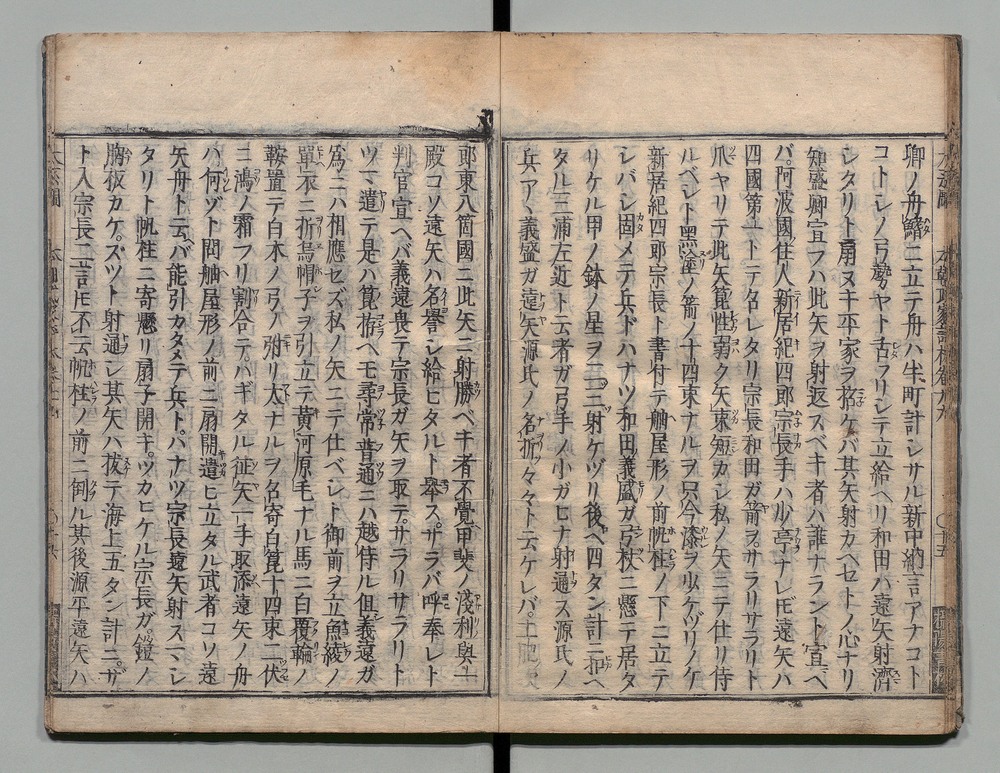 卿ノ舟鰭ニ立テ舟ハ半町計シサル新中納言アナコト
コトシノ弓勢ヤト舌フリシテ立給ヘリ和田ハ遠矢射濟
シタリト扇ヌキ平家ヲ招ケバ其矢射カヘセトノ心ナリ
知盛卿宣フハ此矢ヲ射返スベキ者ハ誰ナラント宣ヘ
バ阿波國住人新居紀四郎宗長手ハ少亭ナレ𪜈遠矢ハ
四國第一トテ名レタリ宗長和田ガ箭ヲサラリサラリト
爪ヤリテ此矢箆性弱ク矢束短カシ私ノ矢ニテ仕リ侍
ルベシト黒塗ノ箭ノ十四束ナルヲ只今漆ヲ少ケヅリノケ
新居紀四郎宗長ト書付テ舳屋形ノ前帆柱ノ下ニ立テ
シバシ固メテ兵ドハナツ和田義盛ガ弓杖ニ懸テ居タ
リケル甲ノ鉢ノ星ヲ三ニ射ケヅリ後ヘ四タン計ニ扣ヘ
タル三浦左近ト云者ガ弓手ノ小ガヒナ射通ス源氏ノ
兵アヽ義盛ガ遠矢源氏ノ名折々々ト云ケレバ
郎東八箇國ニ此矢ニ射勝ベキ者不覺甲斐ノ淺利與一
殿コソ遠矢ハ名譽シ給ヒタルト擧スサラバ呼奉レト
判官宣ヘバ義遠畏テ宗長ガ矢ヲ取テサラリサラリト
ツマ遣テ是ハ箆拵ヘモ尋常普通ニハ越侍ル但義遠ガ
爲ニハ相應セズ私ノ矢ニテ仕ベシト御前ヲ立魚綾ノ
單衣ニ折烏帽子ヲ引立テ黄河原毛ナル馬ニ白覆輪ノ
鞍置テ白木ノ弓ノ弣リ太ナルヲ名寄白箆十四束二伏
ニ鴻ノ霜フリ割合テハギタル征矢一手取添遠矢ノ舟
ハ何ヅト問舳屋形ノ前ニ扇開遣ヒ立タル武者コソ遠
矢舟ト云バ能引カタメテ兵トハナツ宗長遠矢射スマシ
タリト帆柱ニ寄懸リ扇子開キツカヒケル宗長ガ鎧ノ
胸板カケズツト射通シ其矢ハ拔テ海上五タン計ニザ
ト入宗長ニ言𪜈不云帆柱ノ前ニ倒ル其後源平遠矢ハ